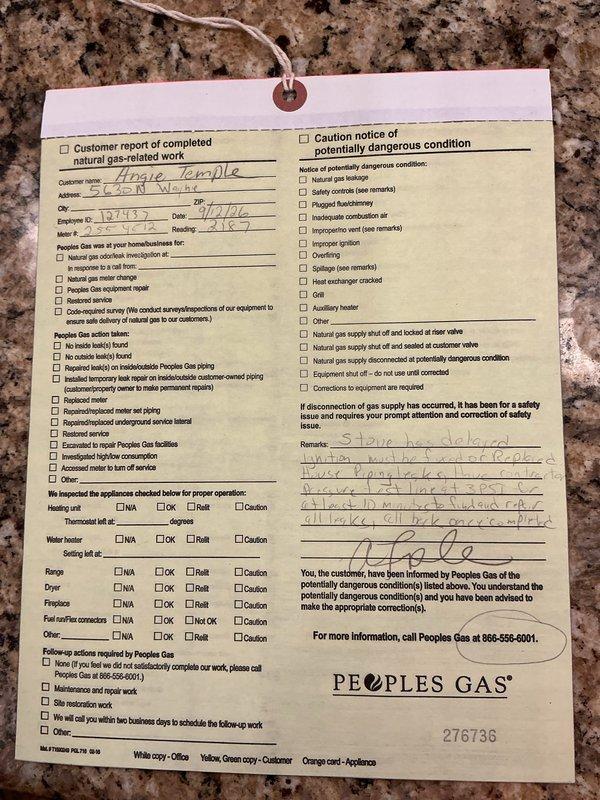 Customer report of completed
natural gas-related work
Customer name: Angie Temple
Address: 5630 N Wayne
City: ZIP:
Employee ID: 127437 Date: 9/12/26
Meter #: Reading: 2187
Peoples Gas was at your home/business for:
Natural gas odor/leak investigation at:
In response to a call from:
Natural gas meter change
Peoples Gas equipment repair
Restored service
Code-required survey (We conduct surveys/inspections of our equipment to
ensure safe delivery of natural gas to our customers.)
Peoples Gas action taken:
No inside leak(s) found
No outside leak(s) found
Repaired leak(s) on inside/outside Peoples Gas piping
Installed temporary leak repair on inside/outside customer-owned piping
(customer/property owner to make permanent repairs)
Replaced meter
Repaired/replaced meter set piping
Repaired/replaced underground service lateral
Restored service
Excavated to repair Peoples Gas facilities
Investigated high/low consumption
Accessed meter to turn off service
Other:
We inspected the appliances checked below for proper operation:
Heating unit N/A OK Relit Caution
Thermostat left at: degrees
Water heater N/A OK Relit Caution
Setting left at:
Range N/A OK Relit Caution
Dryer N/A OK Relit Caution
Fireplace N/A OK Relit Caution
Fuel run/Flex connectors N/A OK Not OK Caution
Other: N/A OK Relit Caution
Follow-up actions required by Peoples Gas
None (If you feel we did not satisfactorily complete our work, please call
Peoples Gas at 866-556-6001.)
Maintenance and repair work
Site restoration work
We will call you within two business days to schedule the follow-up work
Other:
Caution notice of
potentially dangerous condition
Notice of potentially dangerous condition:
Natural gas leakage
Safety controls (see remarks)
Plugged flue/chimney
Inadequate combustion air
Improper/no vent (see remarks)
Improper ignition
Overfiring
Spillage (see remarks)
Heat exchanger cracked
Grill
Auxilliary heater
Other
Natural gas supply shut off and locked at riser valve
Natural gas supply shut off and sealed at customer valve
Natural gas supply disconnected at potentially dangerous condition
Equipment shut off – do not use until corrected
Corrections to equipment are required
If disconnection of gas supply has occurred, it has been for a safety
issue and requires your prompt attention and correction of safety
issue.
Remarks: Stove has delayed
ignition must be fixed or Replaced
House Piping leaks, Have contractor
Pressure test line at 3PSI for
at least 10 minutes to find and repair
all leaks, call back once completed
You, the customer, have been informed by Peoples Gas of the
potentially dangerous condition(s) listed above. You understand the
potentially dangerous condition(s) and you have been advised to
make the appropriate correction(s).
For more information, call Peoples Gas at 866-556-6001.
PEOPLES GAS®
276736
White copy - Office Yellow, Green copy - Customer Orange card - Appliance